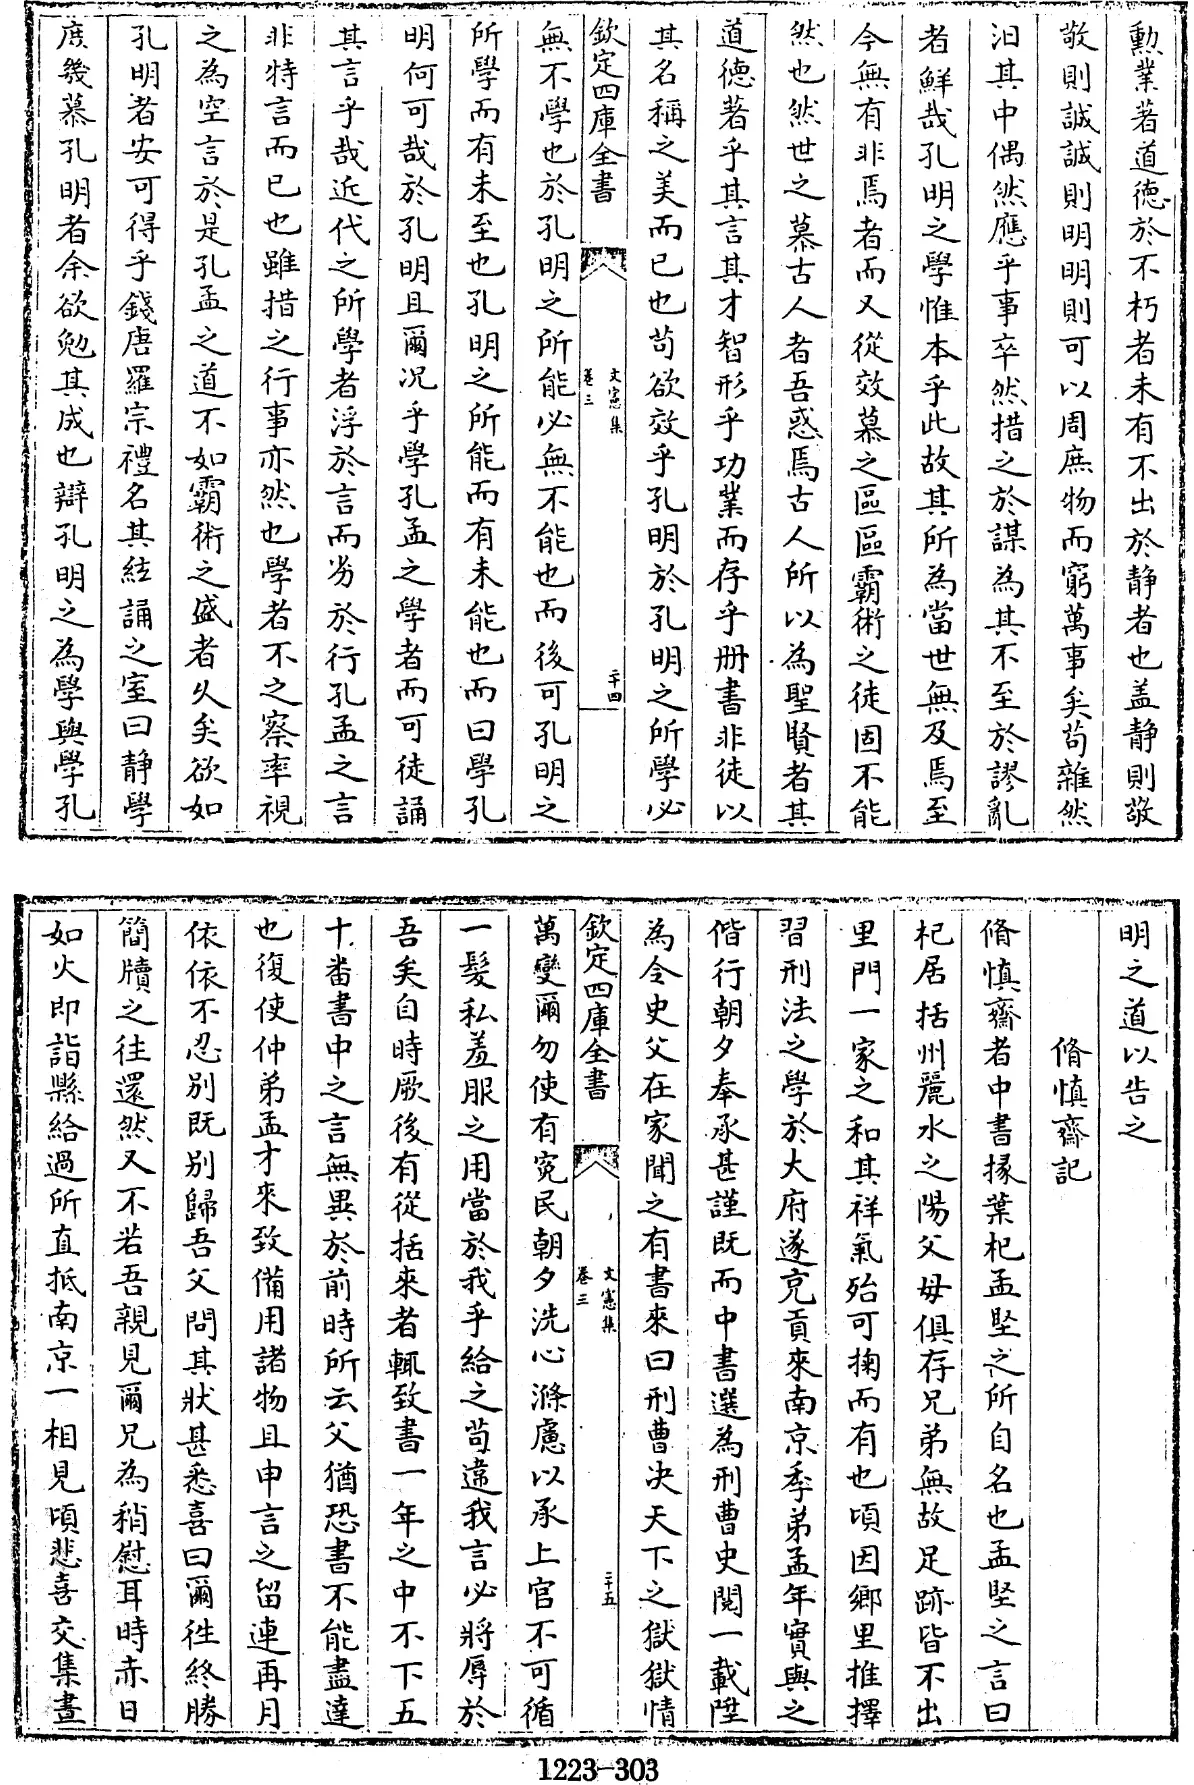 勲業著道德於不朽者未有不出於静者也盖静則敬
敬則誠誠則明明則可以周庶物而窮萬事矣苟雜然
汨其中偶然應乎事卒然措之於謀為其不至於謬亂
者鮮哉孔明之學惟本乎此故其所為當世無及焉至
今無有非焉者而又從效慕之區區霸術之徒固不能
然也然世之慕古人者吾惑焉古人所以為聖賢者其
道德著乎其言其才智形乎功業而存乎册書非徒以
其名稱之美而已也苟欲效乎孔明於孔明之所學必
欽定四庫全書
文憲集
卷三
二十四
無不學也於孔明之所能必無不能也而後可孔明之
所學而有未至也孔明之所能而有未能也而曰學孔
明何可哉於孔明且爾况乎學孔孟之學者而可徒誦
其言乎哉近代之所學者浮於言而劣於行孔孟之言
非特言而已也雖措之行事亦然也學者不之察率視
之為空言於是孔孟之道不如霸術之盛者乆矣欲如
孔明者安可得乎錢唐羅宗禮名其絃誦之室曰静學
庶幾慕孔明者余欲勉其成也辯孔明之為學與學孔
明之道以告之
脩慎齋記
脩慎齋者中書掾葉杞孟堅之所自名也孟堅之言曰
杞居括州麗水之陽父母俱存兄弟無故足跡皆不出
里門一家之和其祥氣殆可掬而有也頃因鄉里推擇
習刑法之學於大府遂充貢來南京季弟孟年實與之
偕行朝夕奉承甚謹既而中書選為刑曹史閱一載陞
為令史父在家聞之有書來曰刑曹决天下之獄獄情
欽定四庫全書
文憲集
卷三
二十五
萬變爾勿使有寃民朝夕洗心滌慮以承上官不可循
一髮私羞服之用當於我乎給之苟違我言必將辱於
吾矣自時厥後有從括來者輒致書一年之中不下五
十畨書中之言無異於前時所云父猶恐書不能盡達
也復使仲弟孟才來致備用諸物且申言之留連再月
依依不忍别既别歸吾父問其狀甚悉喜曰爾徃終勝
簡牘之往還然又不若吾親見爾兄為稍慰耳時赤日
如火即詣縣給過所直抵南京一相見頃悲喜交集晝
1223-303